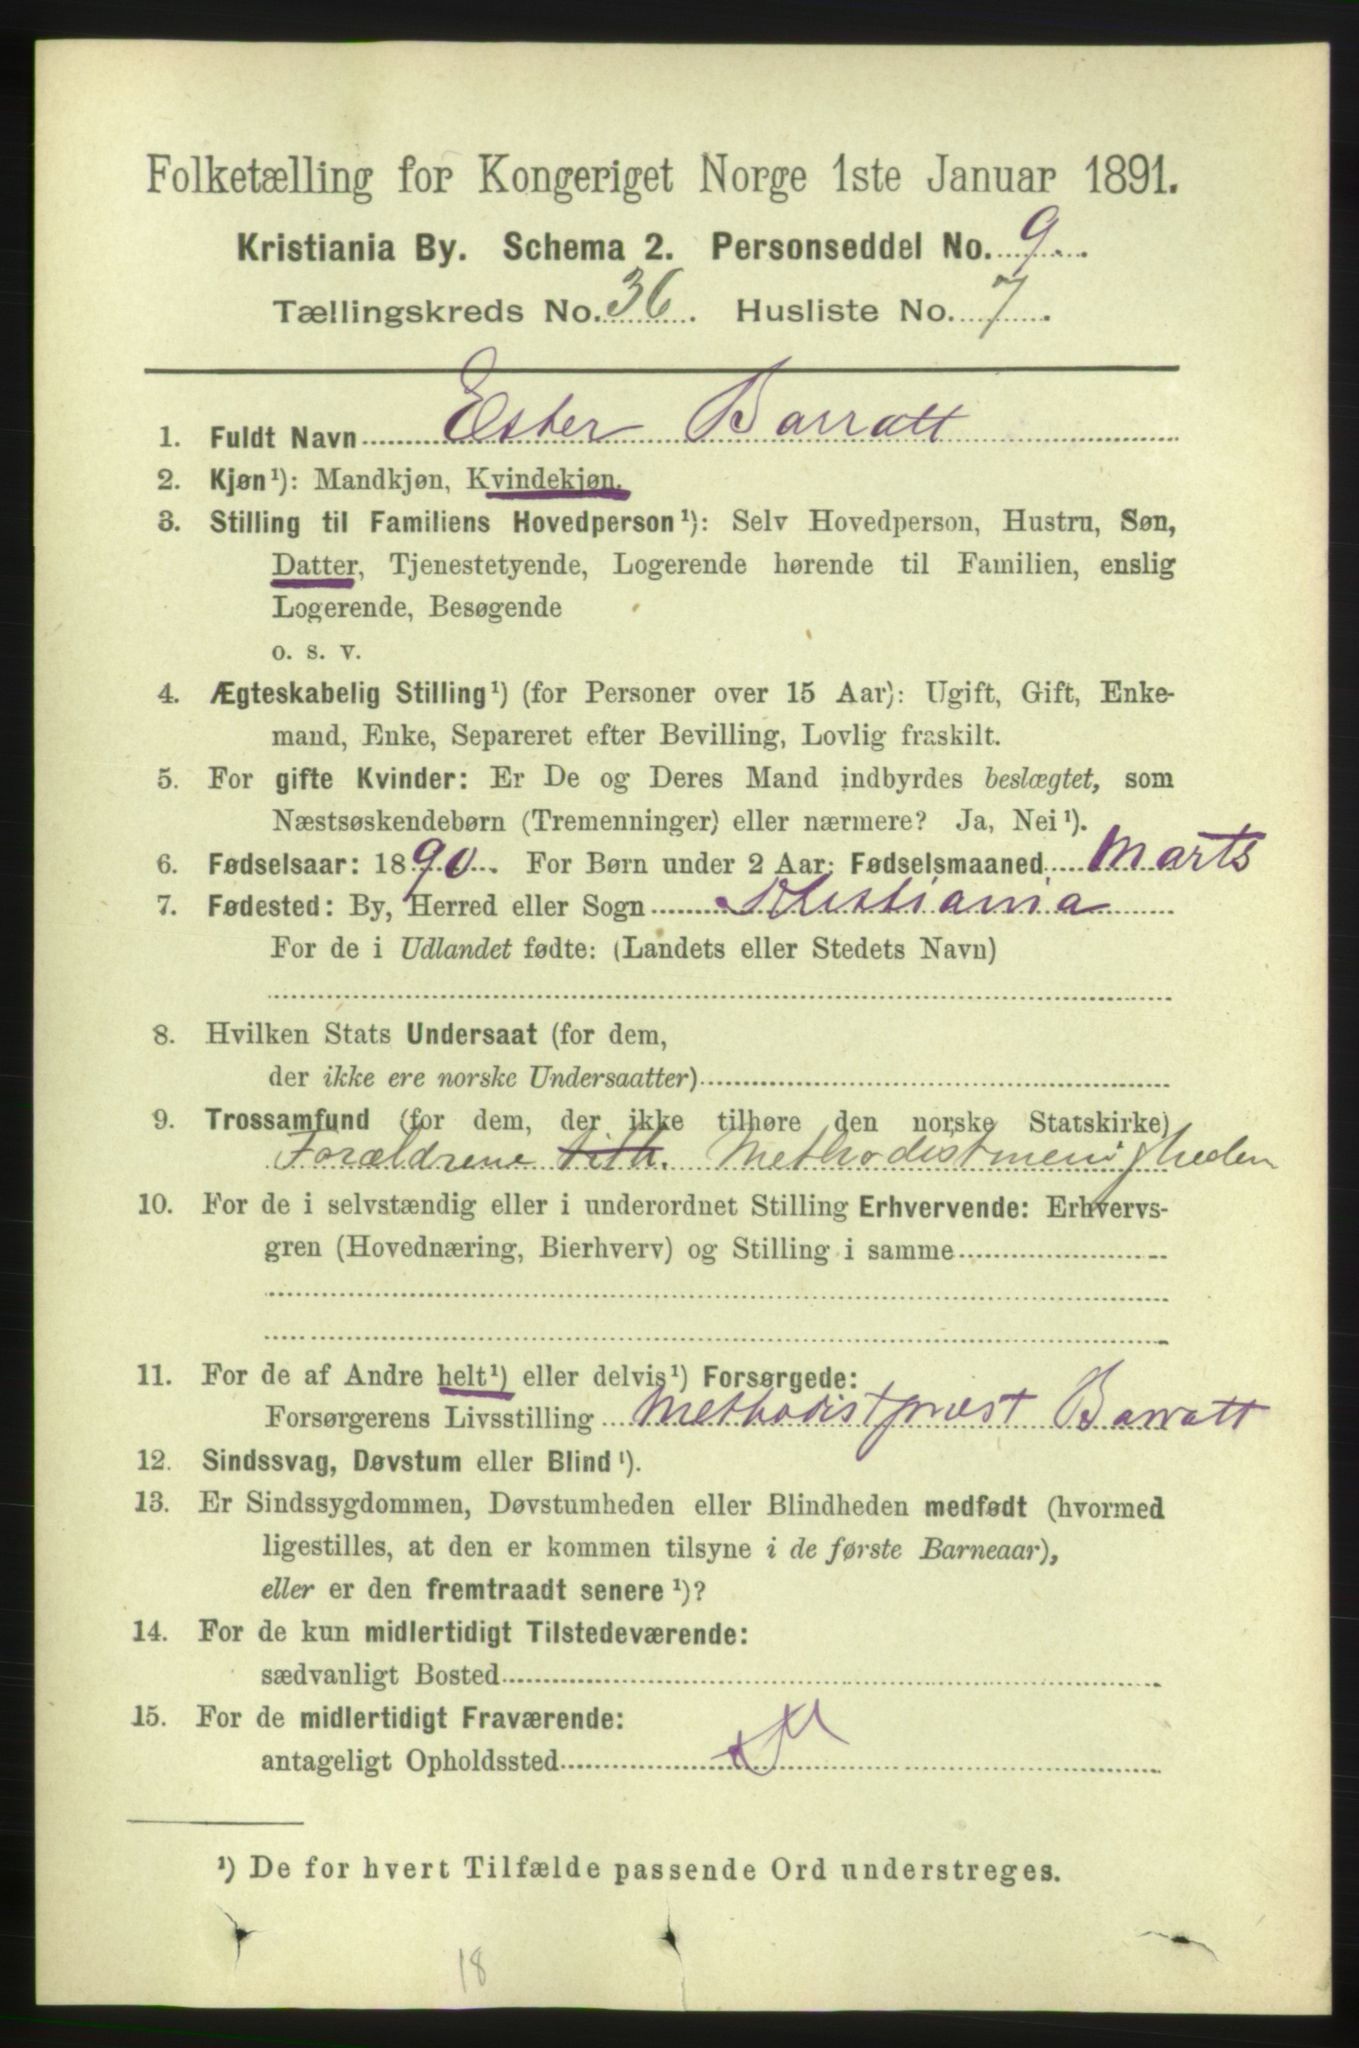 Folketælling for Kongeriget Norge 1ste Januar 1891.
Kristiania By. Schema 2. Personseddel No. 9.
Tællingskreds No. 36. Husliste No. 7.
1. Fuldt Navn Ester Barratt
2. Kjøn¹): Mandkjøn, Kvindekjøn.
3. Stilling til Familiens Hovedperson¹): Selv Hovedperson, Hustru, Søn,
Datter, Tjenestetyende, Logerende hørende til Familien, enslig
Logerende, Besøgende
o. s. v.
4. Ægteskabelig Stilling¹) (for Personer over 15 Aar): Ugift, Gift, Enke-
mand, Enke, Separeret efter Bevilling, Lovlig fraskilt.
5. For gifte Kvinder: Er De og Deres Mand indbyrdes beslægtet, som
Næstsøskendebørn (Tremenninger) eller nærmere? Ja, Nei¹).
6. Fødselsaar: 1890. For Børn under 2 Aar: Fødselsmaaned Marts
7. Fødested: By, Herred eller Sogn Kristiania
For de i Udlandet fødte: (Landets eller Stedets Navn)
8. Hvilken Stats Undersaat (for dem,
der ikke ere norske Undersaatter)
9. Trossamfund (for dem, der ikke tilhøre den norske Statskirke)
Forældrene tilh. Methodistmenigheden
10. For de i selvstændig eller i underordnet Stilling Erhvervende: Erhvervs-
gren (Hovednæring, Bierhverv) og Stilling i samme
11. For de af Andre helt¹) eller delvis¹) Forsørgede:
Forsørgerens Livsstilling Methodistpræst Barratt
12. Sindssvag, Døvstum eller Blind¹).
13. Er Sindssygdommen, Døvstumheden eller Blindheden medfødt (hvormed
ligestilles, at den er kommen tilsyne i de første Barneaar),
eller er den fremtraadt senere¹)?
14. For de kun midlertidigt Tilstedeværende:
sædvanligt Bosted
15. For de midlertidigt Fraværende:
antageligt Opholdssted
¹) De for hvert Tilfælde passende Ord understreges.
18